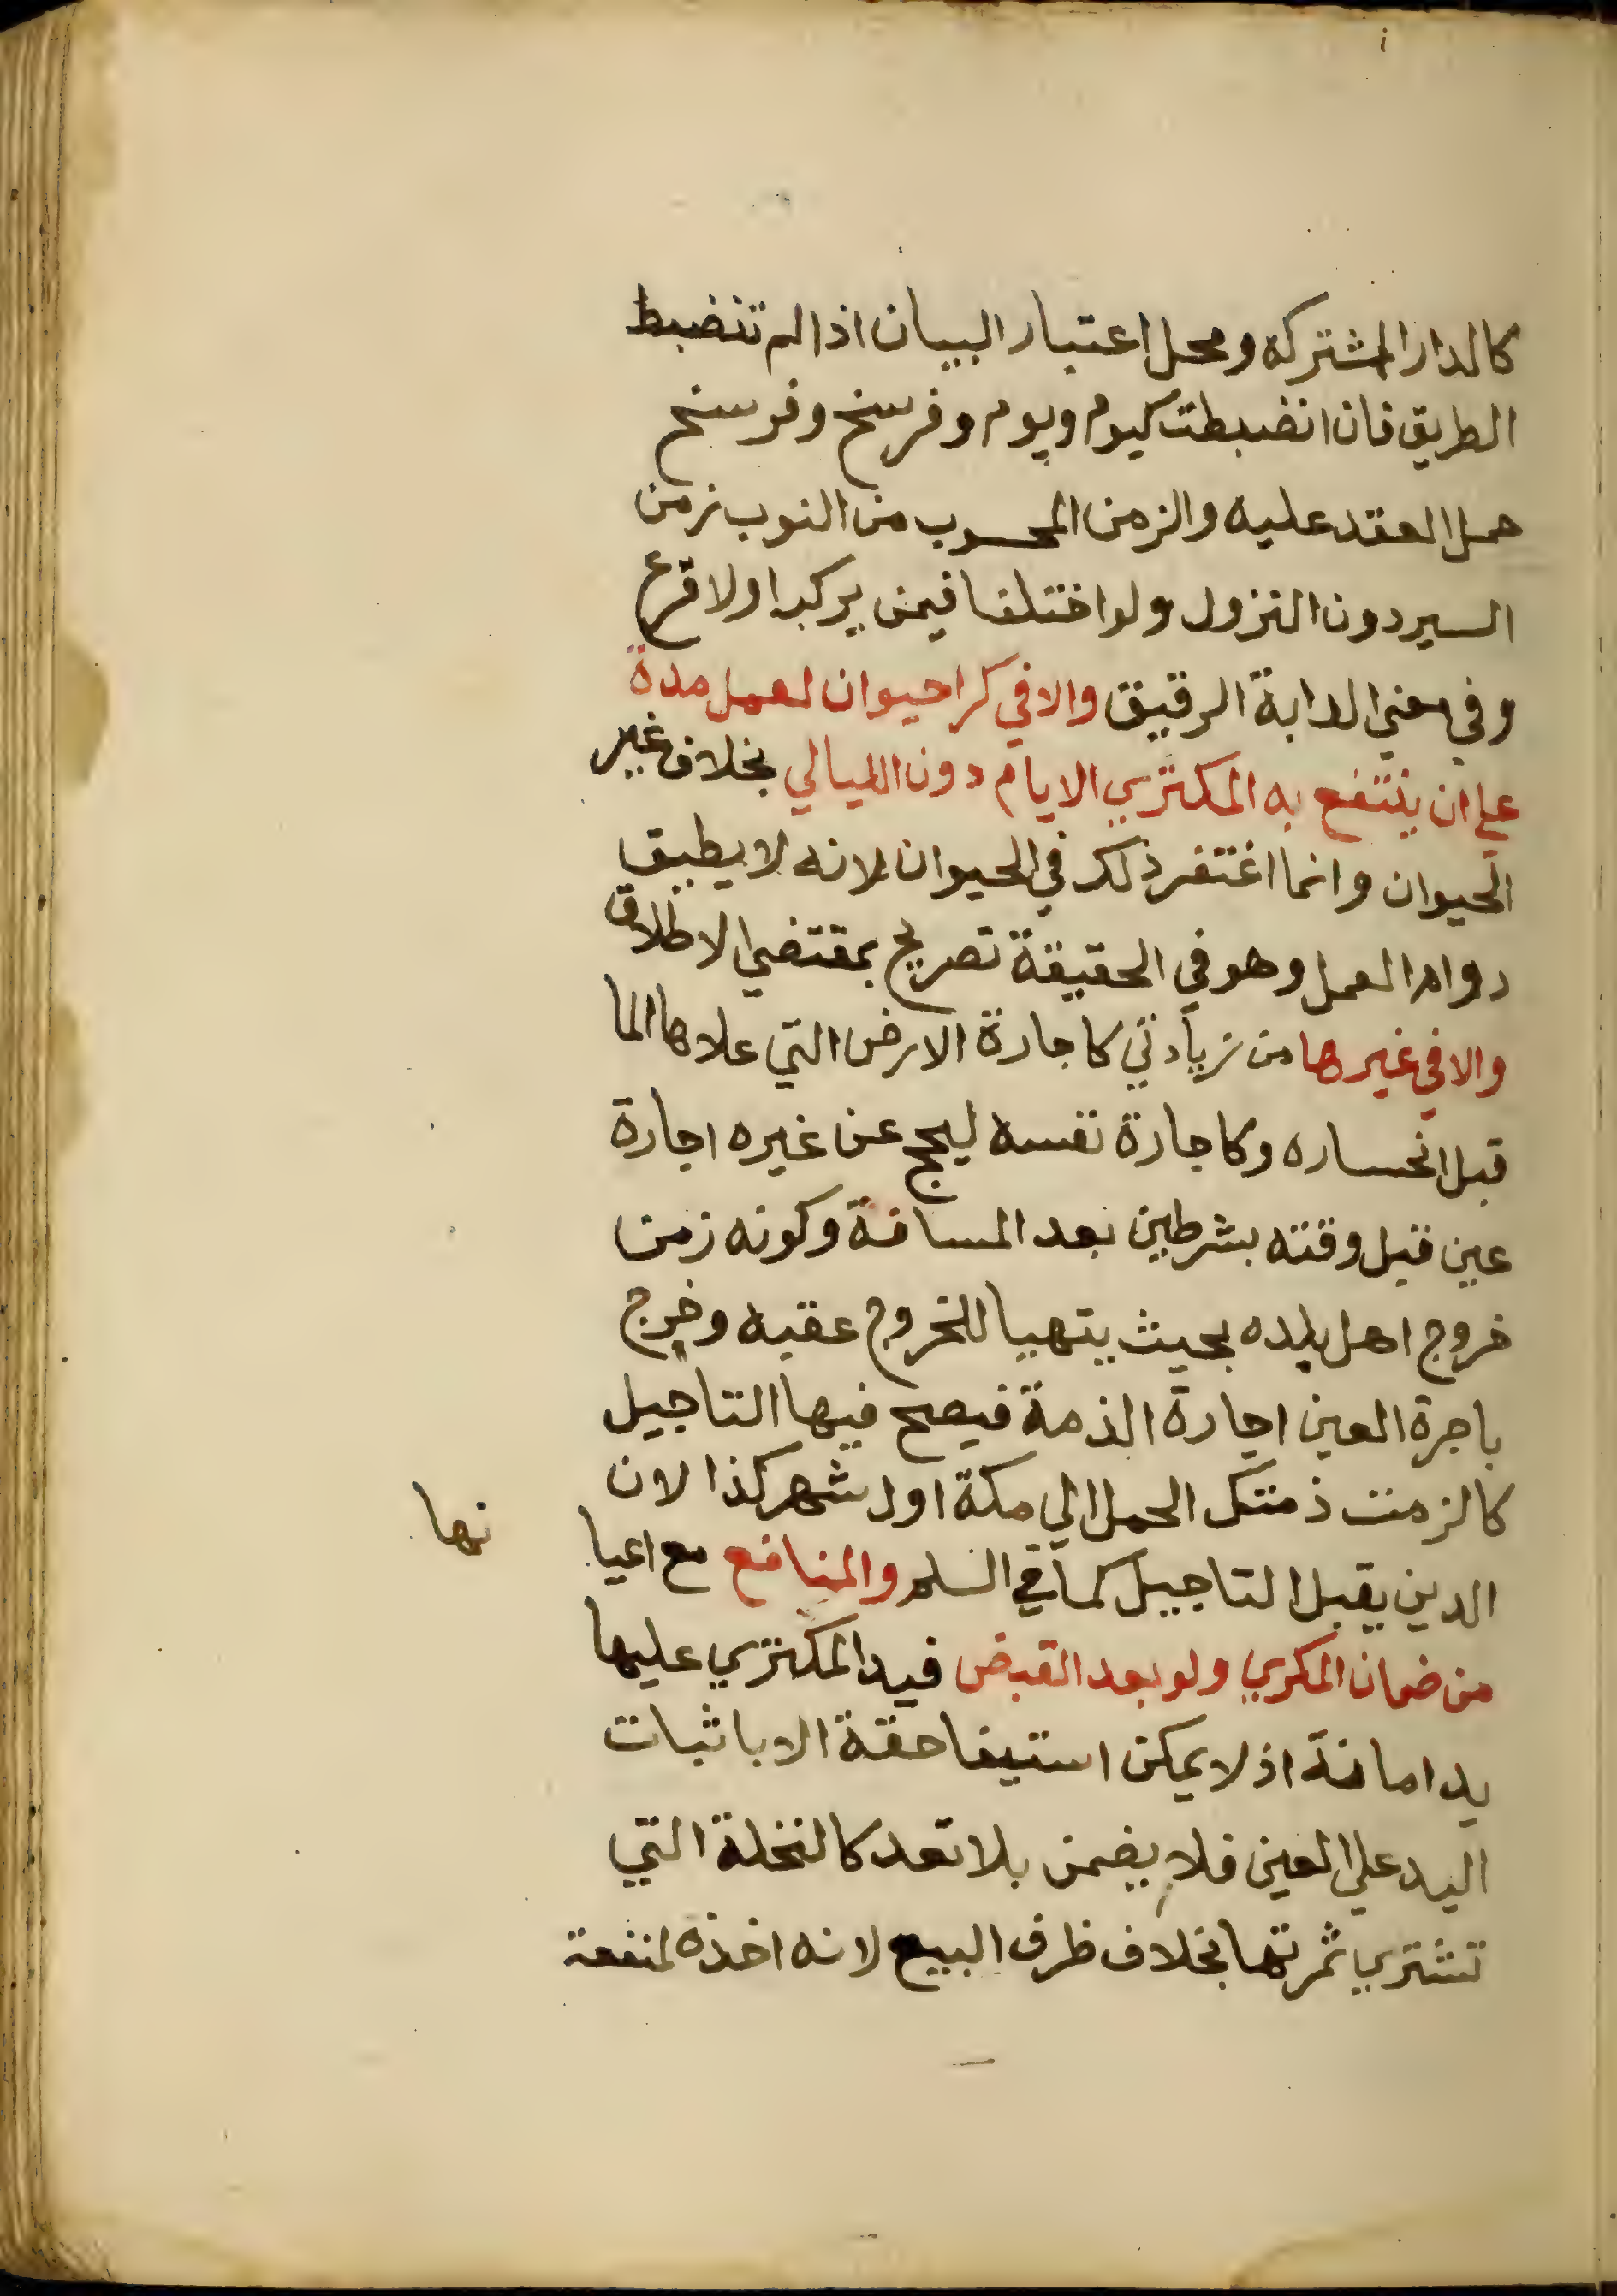 كالدار المشتركة ومحل اعتبار البيان اذا لم تنضبط
الطريق فان انضبطت كيوم ويوم وفرسخ وفرسخ
حمل العقد عليه والزمن المحسوب من النوب زمن
السير دون النزول ولو اختلفا فيمن يركب اولا قرع
وفي معني الدابة الرقيق والا في كرا حيوان لعمل مدة
علي ان ينتفع به المكتري الايام دون الليالي بخلاف غير
الحيوان وانما اغتفر ذلك في الحيوان لانه لا يطيق
دوام العمل وهو في الحقيقة تصريح بمقتضي الاطلاق
والا في غيرها من زيادتي كاجارة الارض التي علاها الما
قبل انحساره وكاجارة نفسه ليحج عن غيره اجارة
عين قبل وقته بشرطين بعد المسافة وكونه زمن
خروج اهل بلده بحيث يتهيا للخروج عقبه وخرج
باجرة العين اجارة الذمة فيصح فيها التاجيل
كالزمت ذمتك الحمل الي مكة اول شهر كذا لان
الدين يقبل التاجيل كما في السلم والمنافع مع اعيا نها
من ضمان المكري ولو بعد القبض فيد المكتري عليها
يد امانة اذ لا يمكن استيفا حقة الا باثبات
اليد علي العين فلا يضمن بلا تعد كالنخلة التي
تشتري ثمرتها بخلاف ظرف البيع لانه اخذه لمنفعة